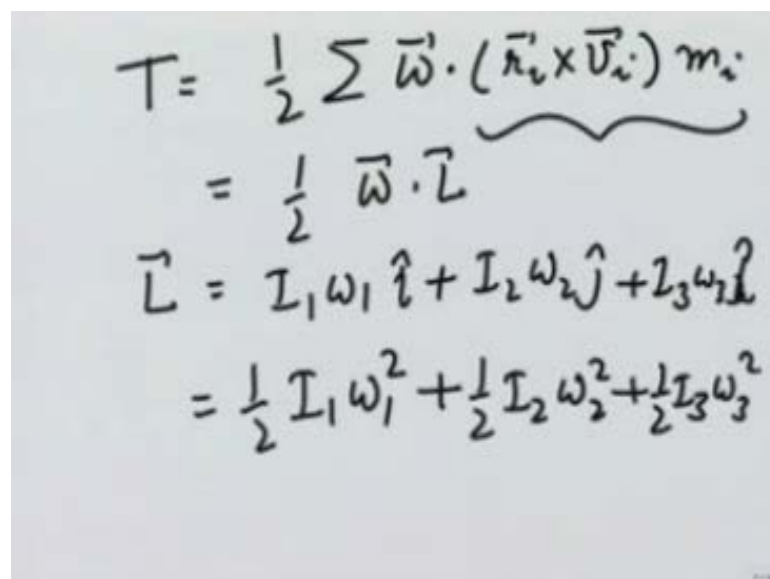 T = 1/2 Σ ω⃗ · (r⃗ᵢ × v⃗ᵢ) mᵢ
= 1/2 ω⃗ · L⃗
L⃗ = I₁ω₁ î + I₂ω₂ ĵ + I₃ω₃ k̂
= 1/2 I₁ω₁² + 1/2 I₂ω₂² + 1/2 I₃ω₃²